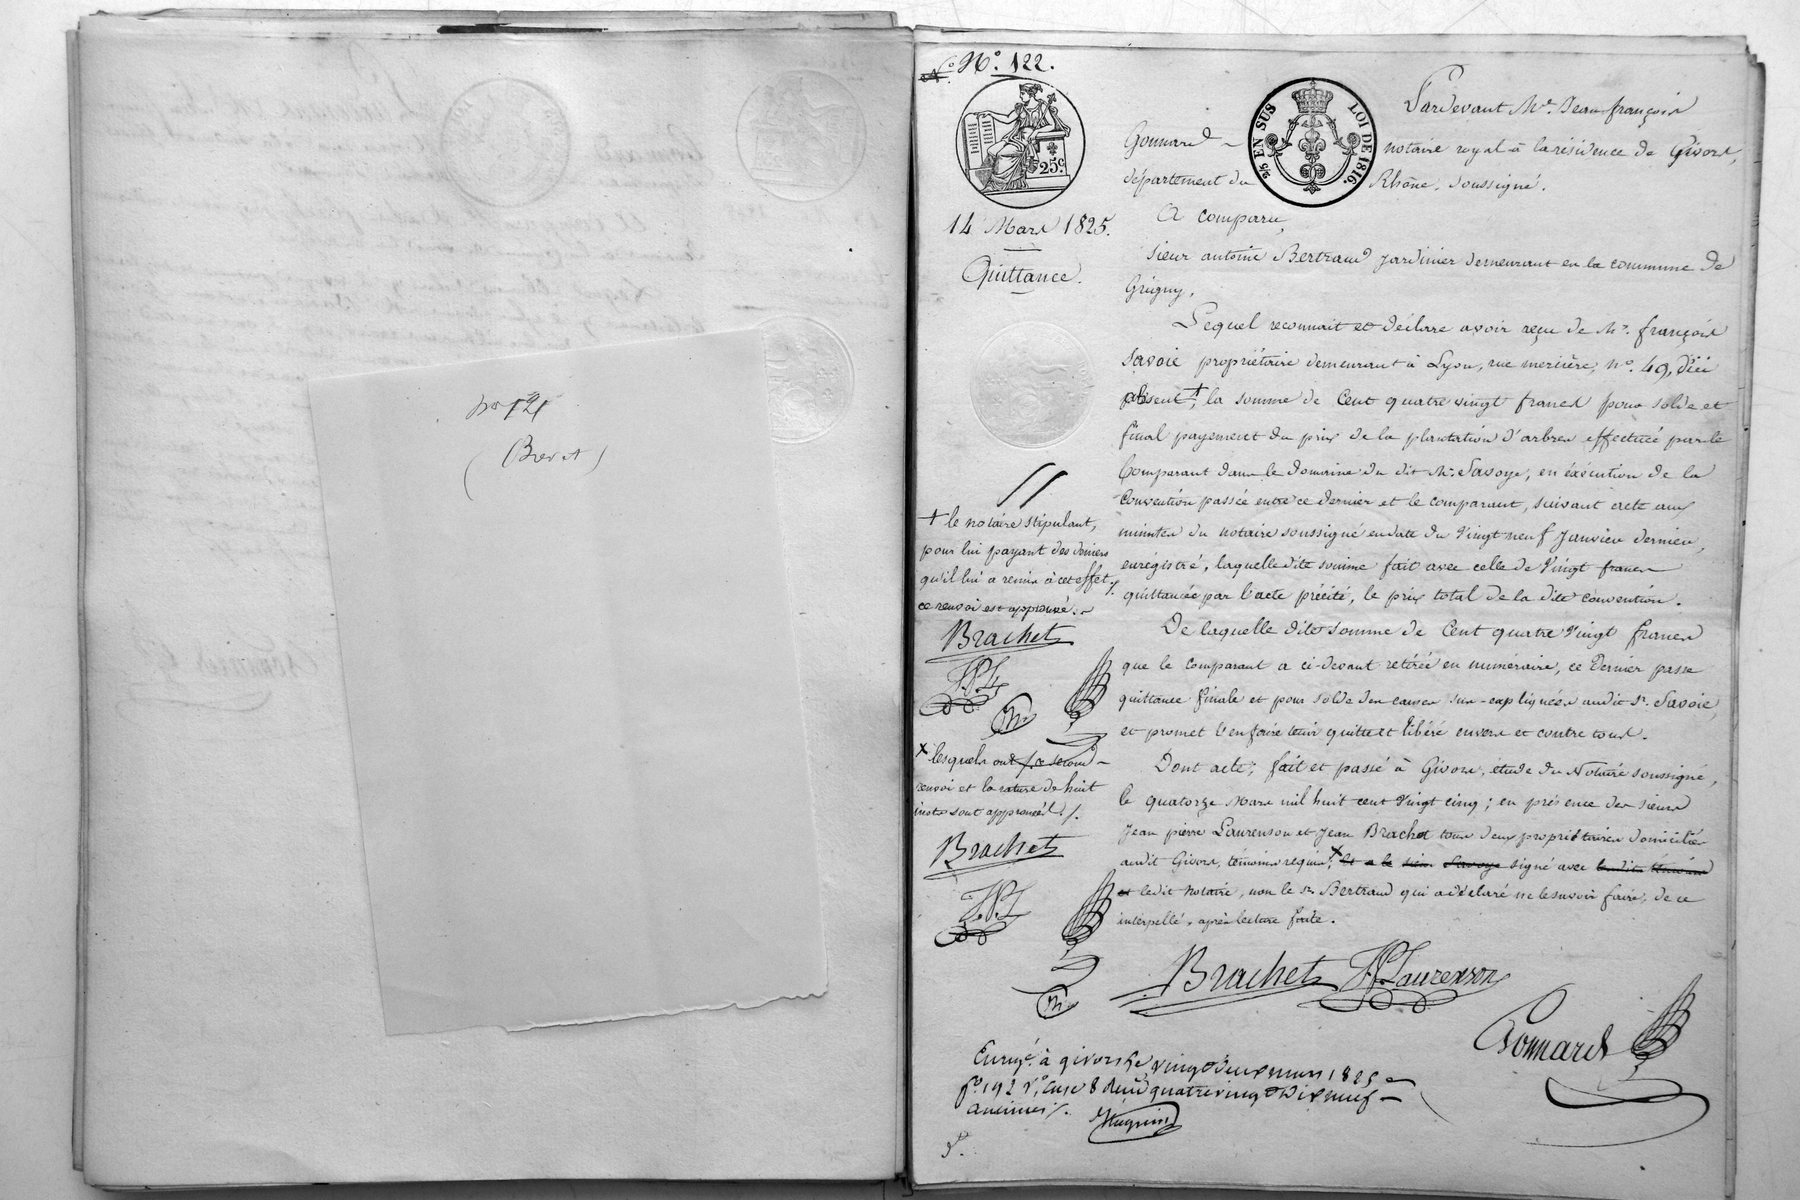 no 121
(Brevet)
N° 122.
25c.
2/5 EN SUS LOI DE 1816.
14 Mars 1825.
Quittance.
Pardevant Me. Jean françois
Gonnard notaire royal à la résidence de Givors,
département du Rhône, soussigné.
A comparu,
Sieur antoine Bertrand jardinier demeurant en la commune de
Grigny.
Lequel reconnait et déclare avoir reçu de Mr. françois
Savoie propriétaire demeurant à Lyon, rue mercière, No. 49, d'ici
absent +, la somme de Cent quatre vingt francs pour solde et
final payement du prix de la plantation d'arbres effectuée par le
Comparant dans le domaine du dit Mr. Savoye, en éxécution de la
Convention passée entre ce dernier et le comparant, suivant acte aux
minutes du notaire soussigné en date du Vingt neuf Janvier dernier,
enrégistré, laquelle dite somme fait avec celle de Vingt francs
quittancée par l'acte précité, le prix total de la dite convention.
De laquelle dite somme de Cent quatre Vingt francs
que le comparant a ci-devant retirée en numéraire, ce dernier passe
quittance finale et pour solde des causes sus-expliquées audit Sr. Savoie,
et promet l'en faire tenir quitte et libéré envers et contre tous.
Dont acte; fait et passé à Givors, étude du Notaire soussigné,
le quatorze Mars mil huit cent Vingt cinq; en présence des sieurs
Jean pierre Laurenson et Jean Brachet tous deux propriétaires domiciliés
audit Givors, témoins requis, x et a le sieur Savoye signé avec
et ledit Notaire, non le Sr. Bertrand qui a déclaré ne le savoir faire, de ce
interpellé, après lecture faite.
+ le notaire stipulant,
pour lui payant des deniers
qu'il lui a remis à cet effet ./.
ce renvoi est approuvé.
Brachet
JPL
x lesquels ont /. ce second
renvoi et la rature de huit
mots sont approuvés ./.
Brachet
JPL
Brachet JPLaurenson
Gonnard
Enregé. à givors le vingt deux mars 1825
fo. 192 Vo. Case 8 Reçu quatre vingt Dix neuf
Centimes ./.